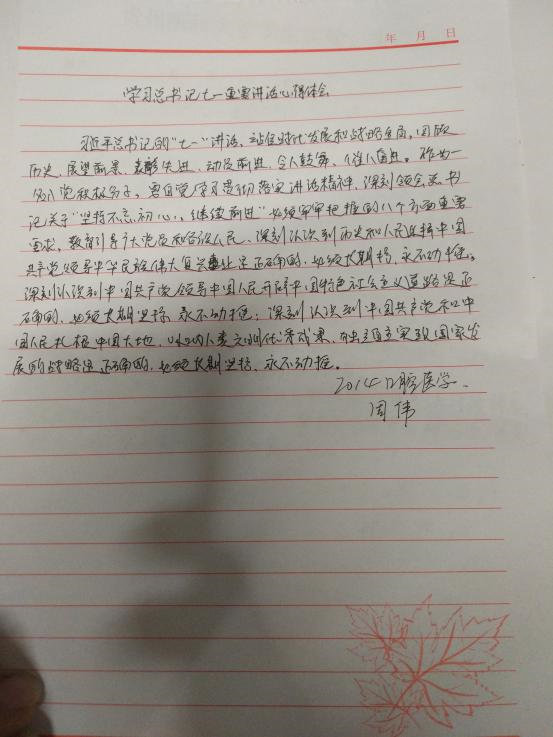 年 月 日
学习总书记七一重要讲话心得体会
习近平总书记的“七一”讲话，站位时代发展和战略全局，回顾
历史，展望前景，表彰先进，动员前进，令人鼓舞、催人奋进。作为一
名入党积极分子，要自觉学习贯彻落实讲话精神，深刻领会总书
记关于“坚持不忘初心、继续前进”必须牢牢把握的八个方面重要
要求，教育引导广大党员和各级人民，深刻认识到历史和人民选择中国
共产党领导中华民族伟大复兴事业是正确的，必须长期坚持，永不动摇。
深刻认识到中国共产党领导中国人民开辟中国特色社会主义道路是正
确的，必须长期坚持，永不动摇；深刻认识到中国共产党和中
国人民扎根中国大地、吸纳人类文明优秀成果、独立自主实现国家发
展的战略是正确的，必须长期坚持、永不动摇。
2014口腔医学
周伟